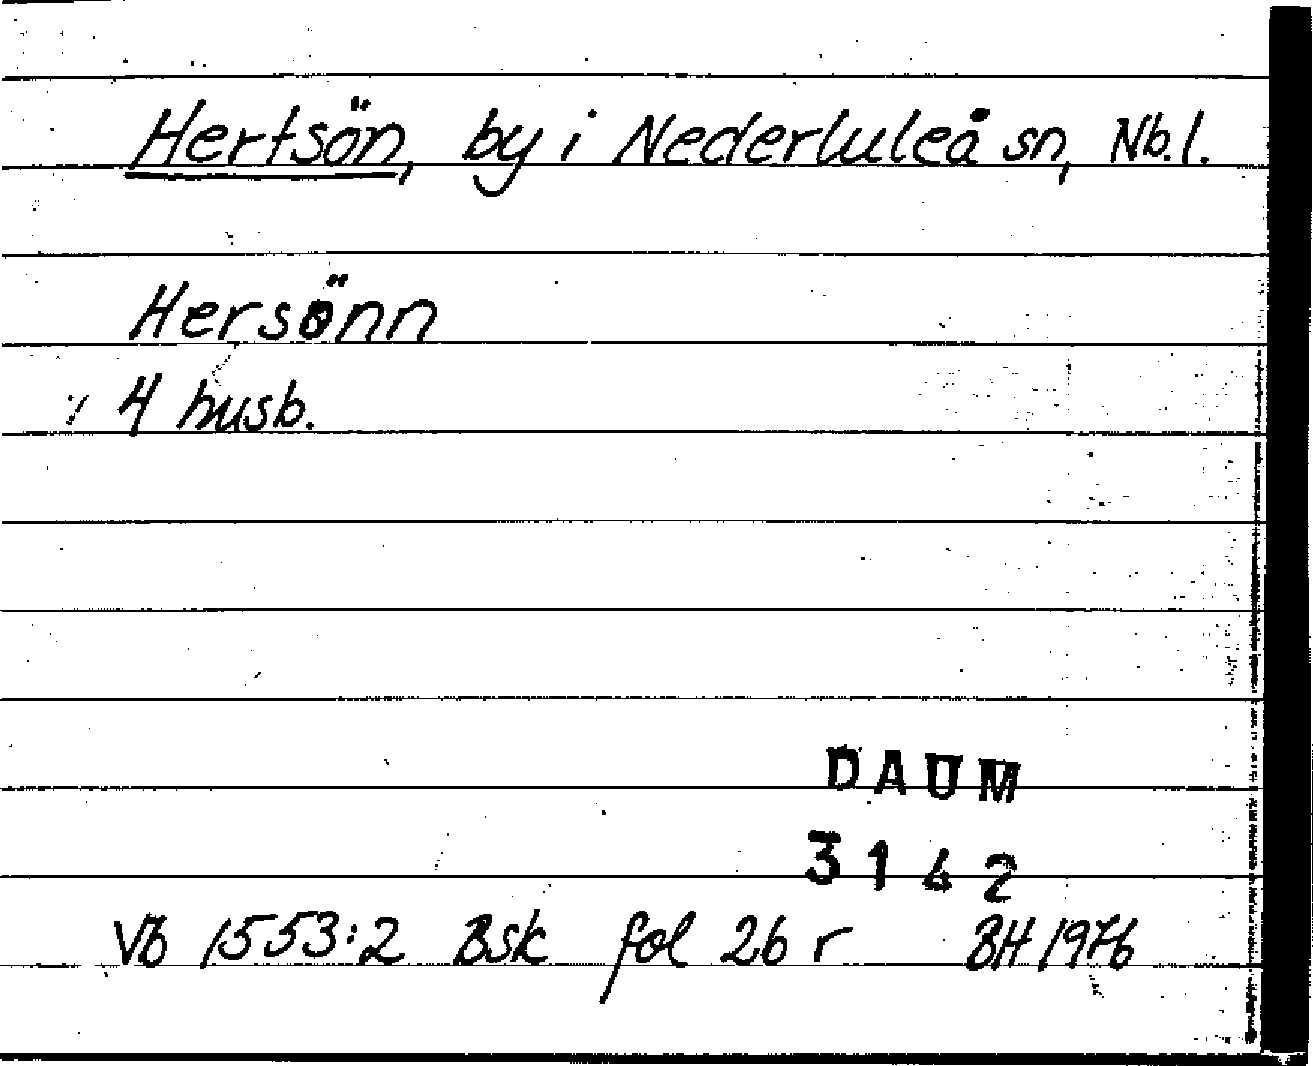 Hertsön, by i Nederluleå sn, Nb.l.
Hersönn
4 husb.
DAUM
3142
Vb 1553:2 Bsk fol 26 r BH 1976